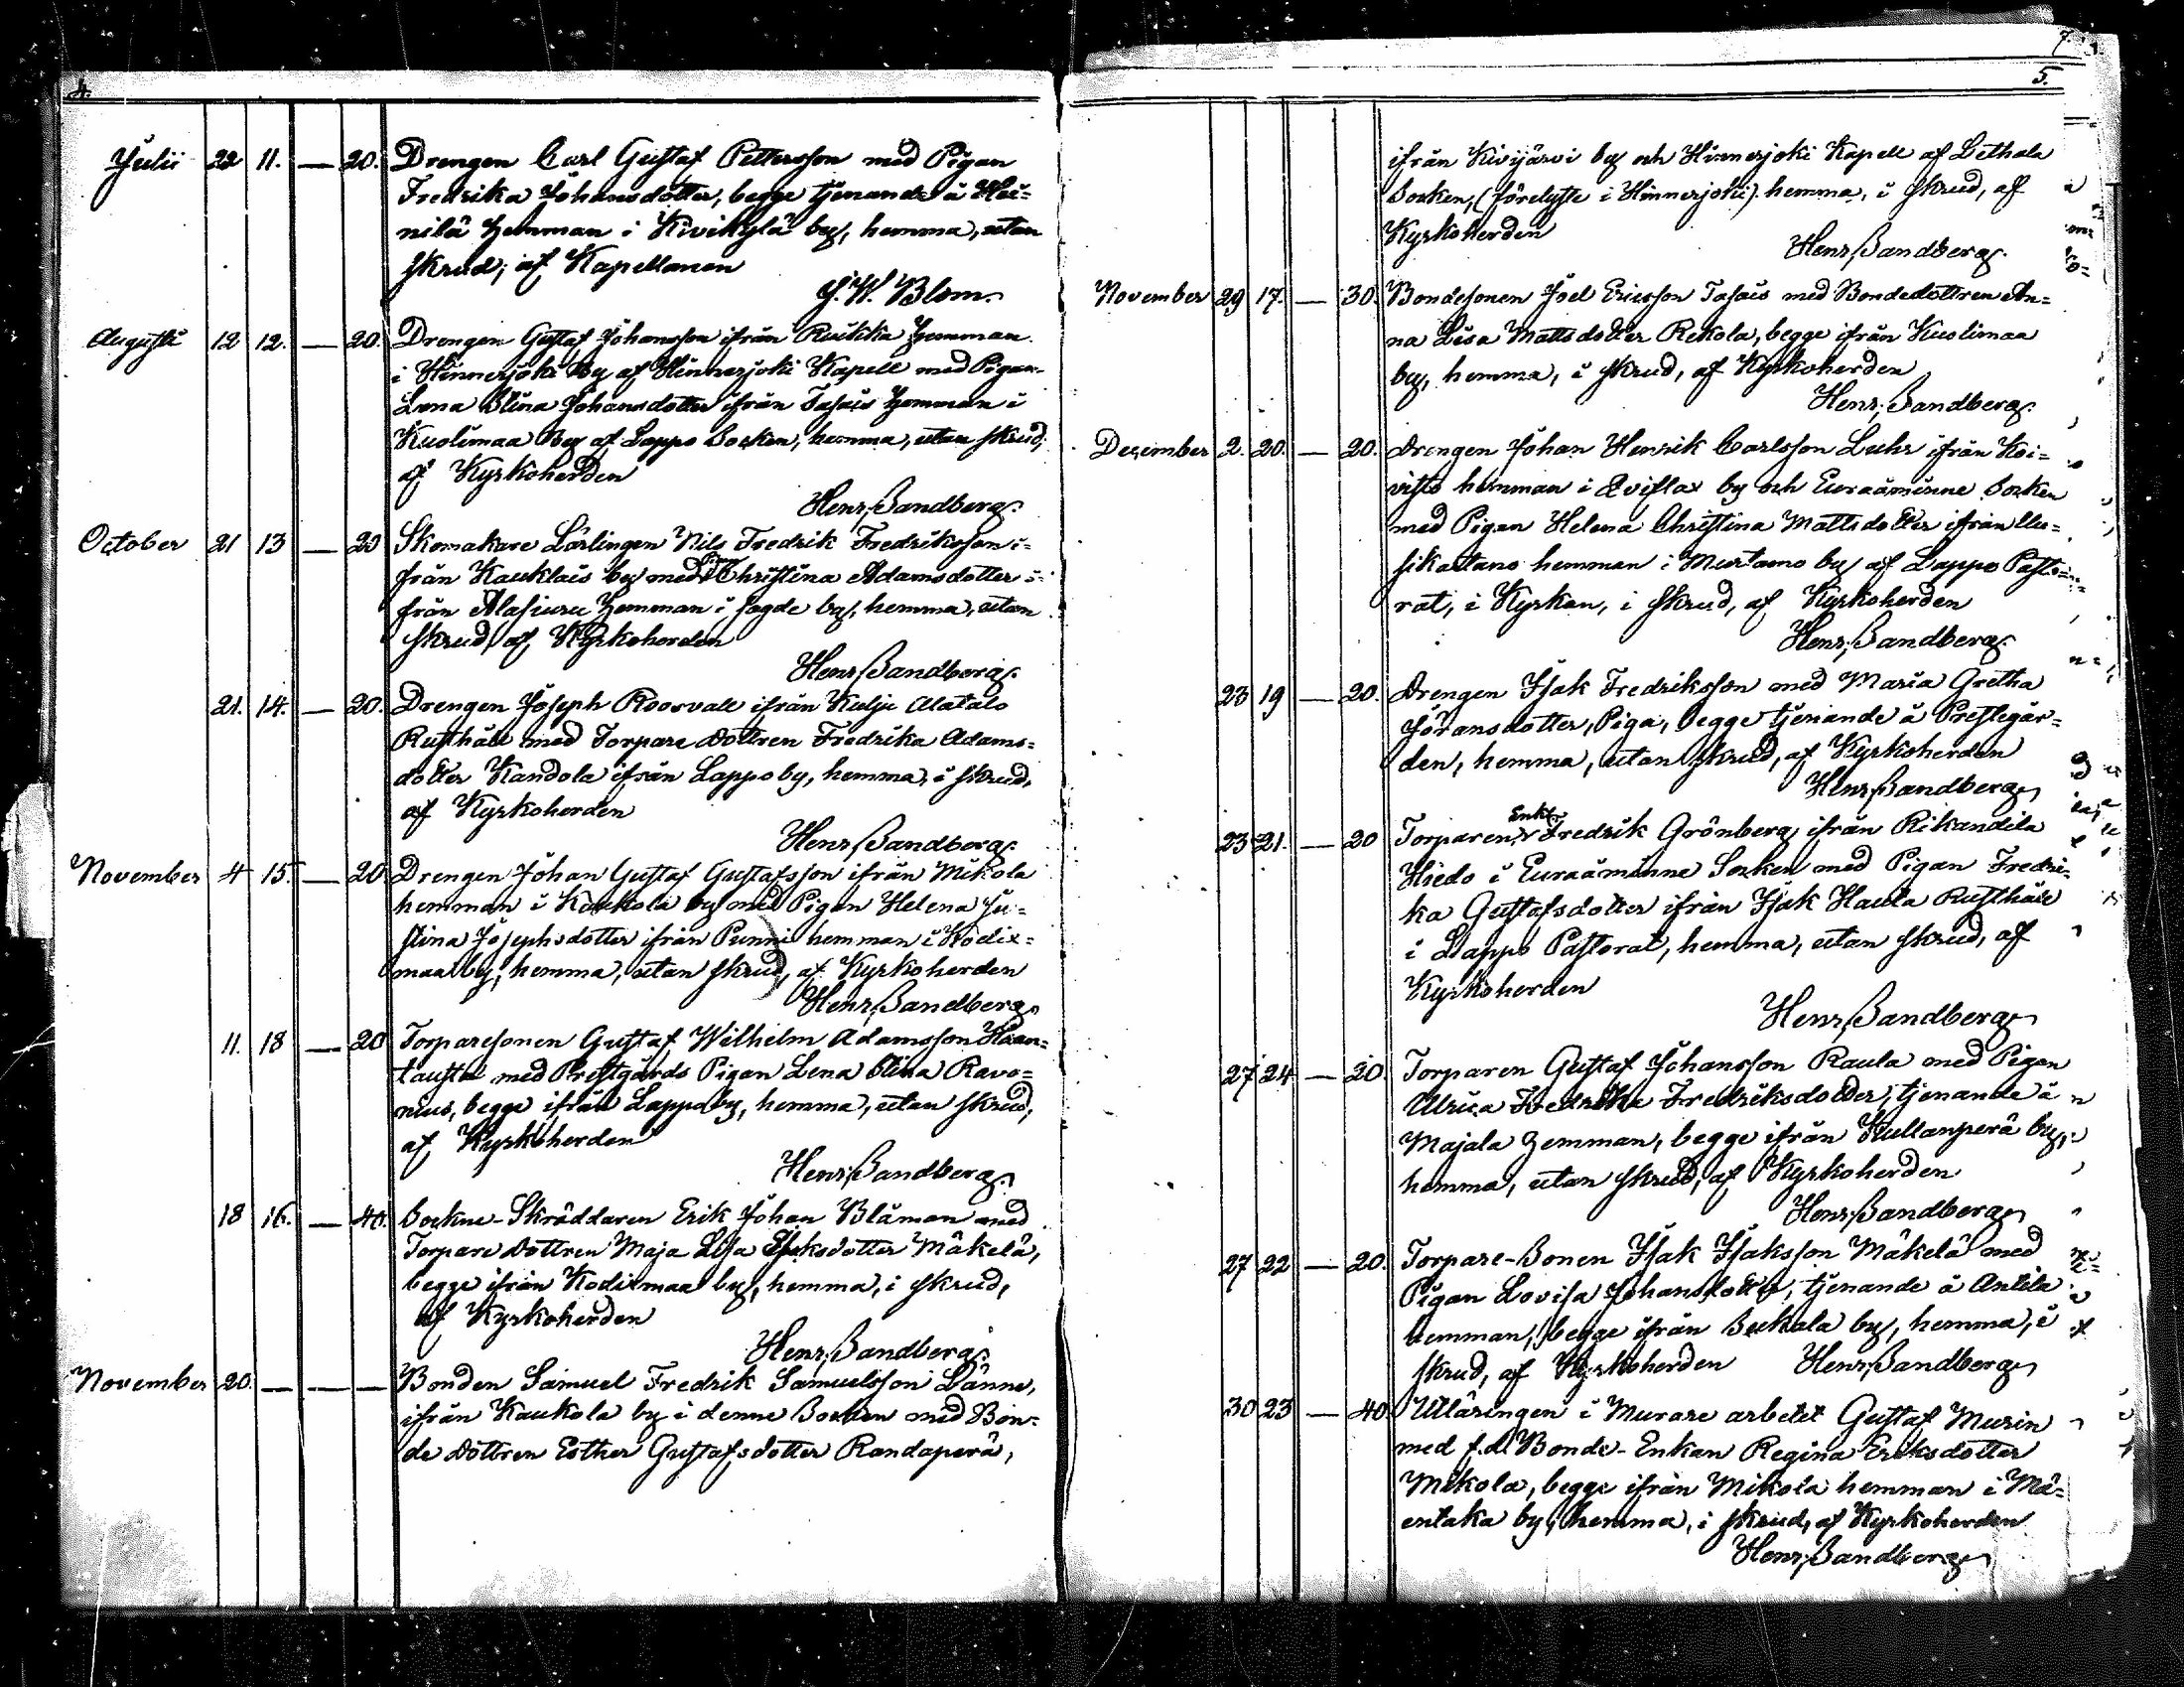 4.
Julii 22 11. — 20. Drengen Carl Gustaf Pettersson med Pigan
Fredrika Johansdotter, begge tjenande å Hei=
nilä Hemman i Kivikylä by, hemma, utan
skrud; af Kapellanen
J. W. Blom.
Augusti 12 12. — 20. Drengen Gustaf Johansson ifrån Ruikka Hemman
i Hinnerjoki By af Hinnerjoki Kapell med Pigan
Lena Stina Johansdotter ifrån Tasais Hemman i
Kuolimaa By af Lappo Socken, hemma, utan skrud,
af Kyrkoherden
Henr. Sandberg.
October 21 13 — 20 Skomakare Lärlingen Nils Fredrik Fredriksson i=
från Kauklais by med Christina Adamsdotter i=
från Alasjuru Hemman i sagde by, hemma, utan
skrud, af Kyrkoherden
Henr. Sandberg.
21. 14. — 20. Drengen Joseph Roosvall ifrån Kulju Alatalo
Rusthåll med Torpare Dottren Fredrika Adams=
dotter Kandola ifrån Lappo by, hemma, i skrud,
af Kyrkoherden
Henr. Sandberg.
November 4 15. — 20. Drengen Johan Gustaf Gustafsson ifrån Mikola
hemman i Kaukola by med Pigan Helena Ju=
stina Josephsdotter ifrån Punni hemman i Kodix=
maa by, hemma, utan skrud, af Kyrkoherden
Henr. Sandberg.
11. 18 — 20 Torparesonen Gustaf Wilhelm Adamsson Haan=
tausta med Prestgårds Pigan Lena Stina Ravo=
nius, begge ifrån Lappo by, hemma, utan skrud,
af Kyrkoherden
Henr. Sandberg.
18 16. — 40. Sockne-Skräddaren Erik Johan Blåman med
Torpare Dottren Maja Lisa Eriksdotter Mäkelä,
begge ifrån Kodixmaa by, hemma, i skrud,
af Kyrkoherden
Henr. Sandberg.
November 20. — — — Bonden Samuel Fredrik Samuelsson Länne,
ifrån Kaukola by i denne Socken med Bon=
de Dottren Esther Gustafsdotter Randaperä,
7.
5.
ifrån Kivijärvi by och Hinnerjoki Kapell af Lethala
Socken, (förelyste i Hinnerjoki). hemma, i skrud, af
Kyrkoherden
Henr. Sandberg.
November 29 17. — 30. Bondesonen Joel Ericsson Tasais med Bondedottren An=
na Lisa Mattsdotter Rekola, begge ifrån Kuolimaa
by, hemma, i skrud, af Kyrkoherden
Henr. Sandberg.
December 2. 20. — 20. Drengen Johan Henrik Carlsson Luhr ifrån Koi=
visto hemman i Lavilax by och Euraåminne Socken
med Pigan Helena Christina Mattsdotter ifrån Uu=
sikartano hemman i Murtamo by af Lappo Pasto=
rat, i Kyrkan, i skrud, af Kyrkoherden
Henr. Sandberg.
23 19 — 20. Drengen Isak Fredriksson med Maria Gretha
Jöransdotter, Piga, begge tjenande å Prestegår=
den, hemma, utan skrud, af Kyrkoherden
Henr. Sandberg.
Enkl.
23 21. — 20 Torparen Fredrik Grönberg ifrån Rikandila
Hiedo i Euraåminne Socken med Pigan Fredri=
ka Gustafsdotter ifrån Isak Haula Rusthåll
i Lappo Pastorat, hemma, utan skrud, af
Kyrkoherden
Henr. Sandberg.
27 24 — 20. Torparen Gustaf Johansson Raula med Pigan
Ulrica Fredrika Fredriksdotter, tjenande å
Majala Hemman, begge ifrån Kullanperä by,
hemma, utan skrud, af Kyrkoherden
Henr. Sandberg.
27 22 — 20. Torpare-Sonen Isak Isaksson Mäkelä med
Pigan Lovisa Johansdotter, tjenande å Antila
hemman, begge ifrån Sukala by, hemma, i
skrud, af Kyrkoherden Henr. Sandberg.
30 23 — 40. Utlärlingen i Murare arbetet Gustaf Murin
med f.d. Bonde-Enkan Regina Eriksdotter
Mikola, begge ifrån Mikola hemman i Mä=
entaka by, hemma, i skrud, af Kyrkoherden
Henr. Sandberg.